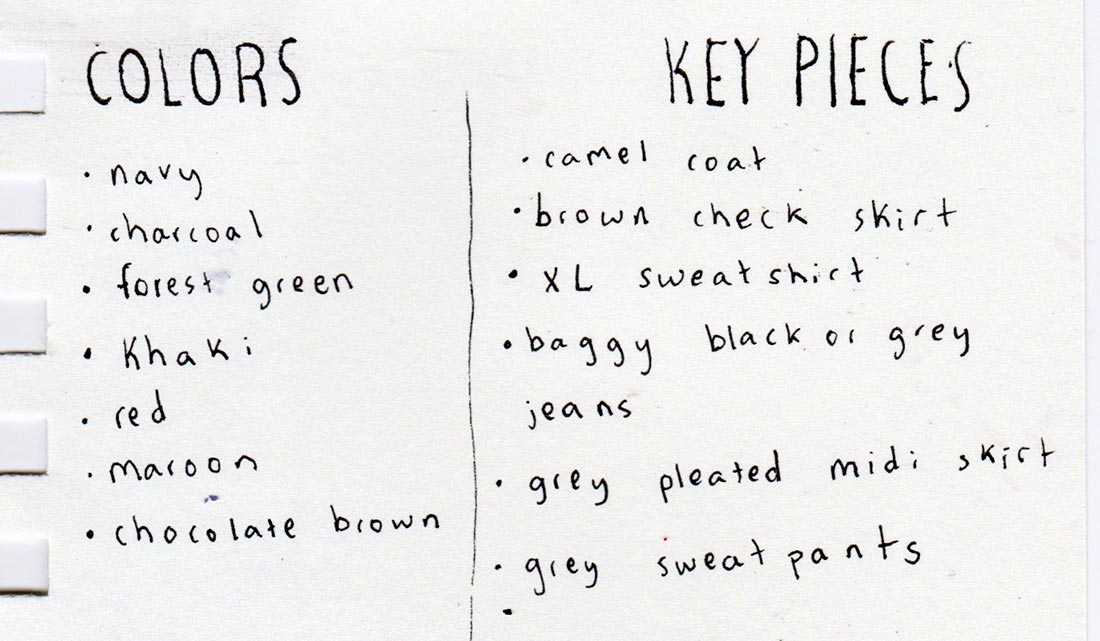 COLORS
• navy
• charcoal
• forest green
• Khaki
• red
• maroon
• chocolate brown
KEY PIECES
• camel coat
• brown check skirt
• XL sweatshirt
• baggy black or grey
jeans
• grey pleated midi skirt
• grey sweatpants
•